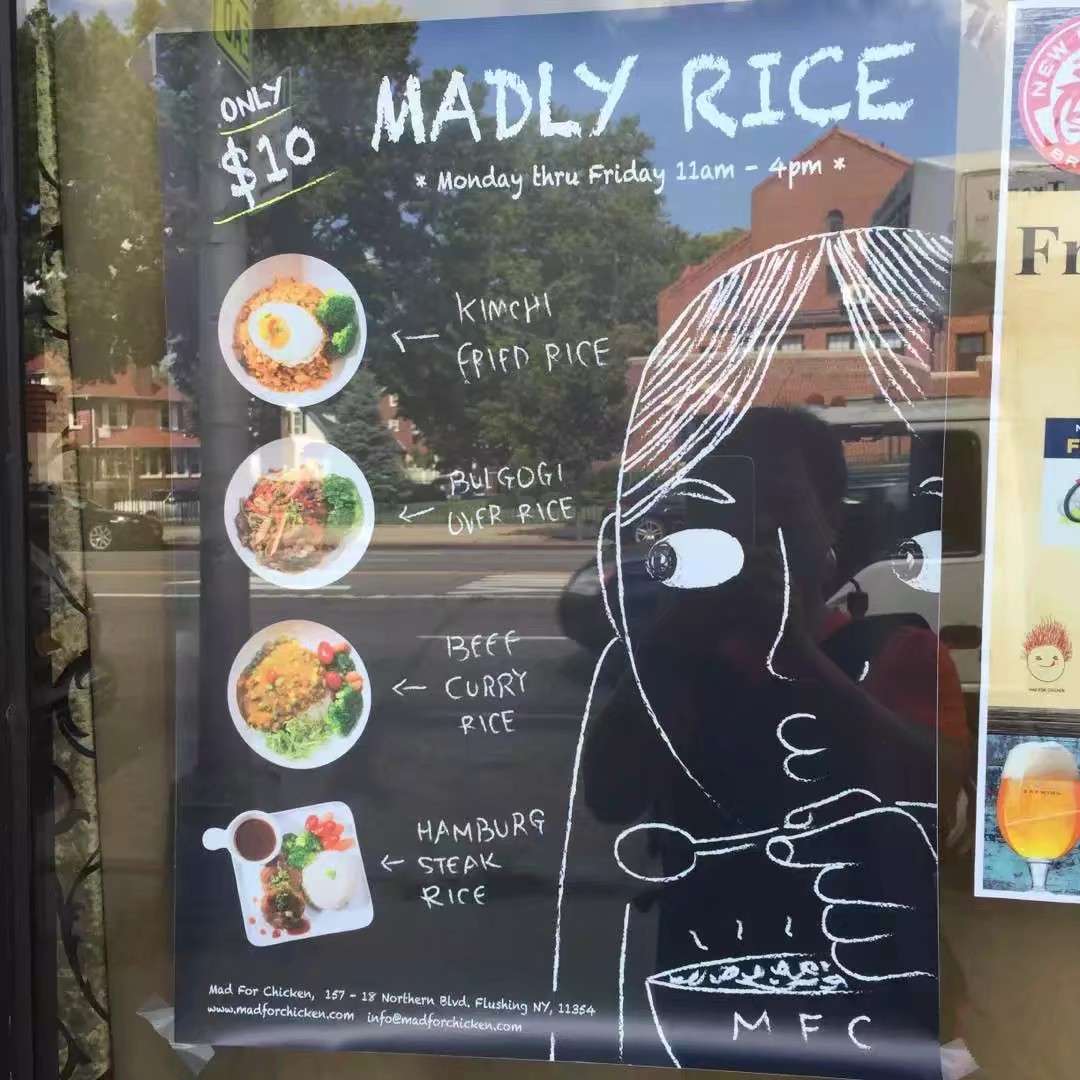 ONLY
$10
MADLY RICE
* Monday thru Friday 11am - 4pm *
KIMCHI
FRIED RICE
BULGOGI
OVER RICE
BEEF
CURRY
RICE
HAMBURG
STEAK
RICE
Mad For Chicken, 157 - 18 Northern Blvd. Flushing NY, 11354
www.madforchicken.com info@madforchicken.com
MFC
NEW
BR
Fr
N
F
MAD FOR CHICKEN
BREWING